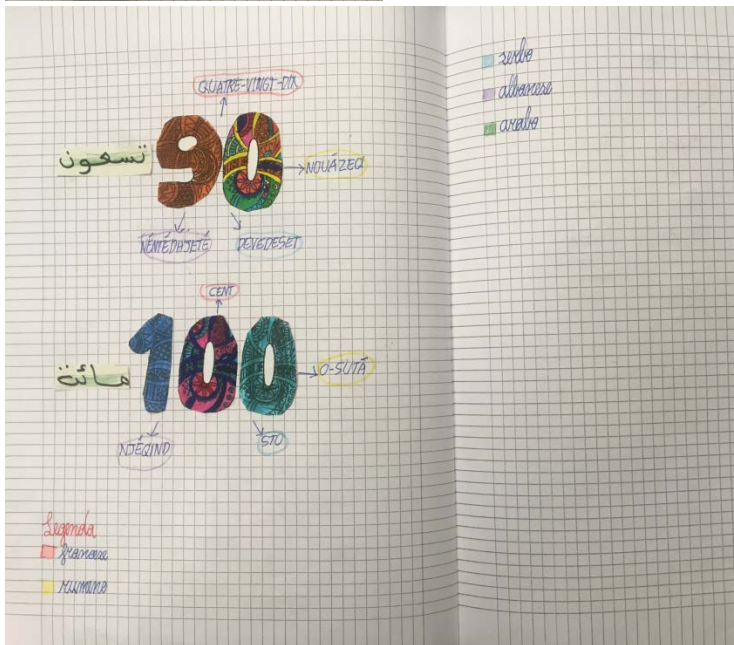 QUATRE-VINGT-DIX
تسعون
90
NOUÁZECI
NËNTËDHJETË
DEVEDESET
CENT
مائة
100
O-SUTĂ
NJËQIND
STO
Legenda
francese
rumeno
serbo
albanese
arabo